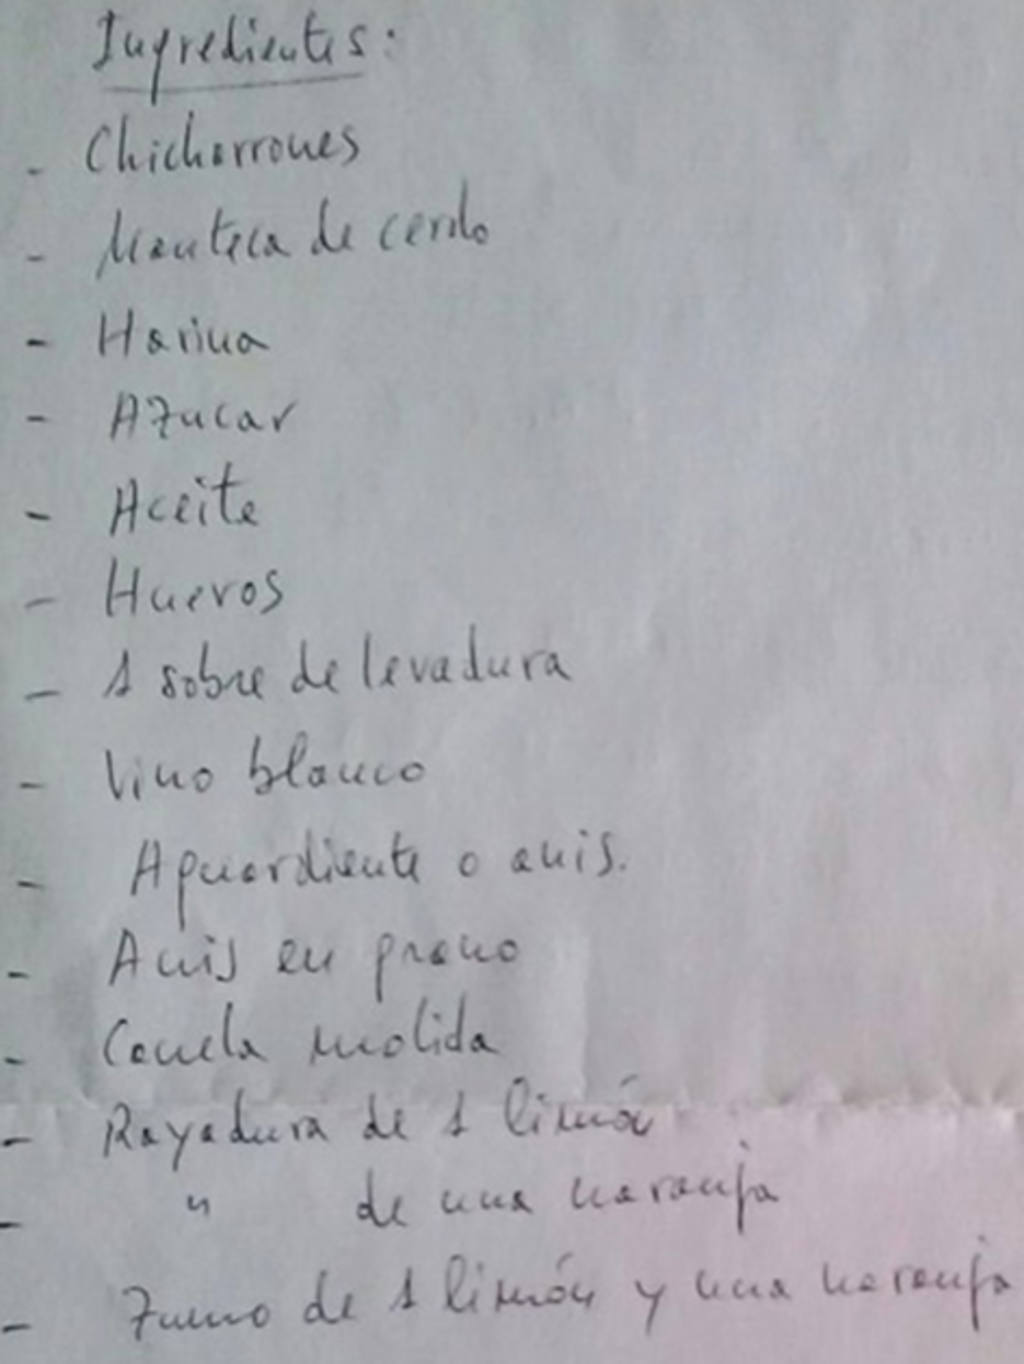 Ingredientes:
- Chicharrones
- Manteca de cerdo
- Harina
- Azucar
- Aceite
- Huevos
- 1 sobre de levadura
- Vino blanco
- Aguardiente o anis.
- Anis en grano
- Canela molida
- Rayadura de 1 limón
- " de una naranja
- Zumo de 1 limón y una naranja